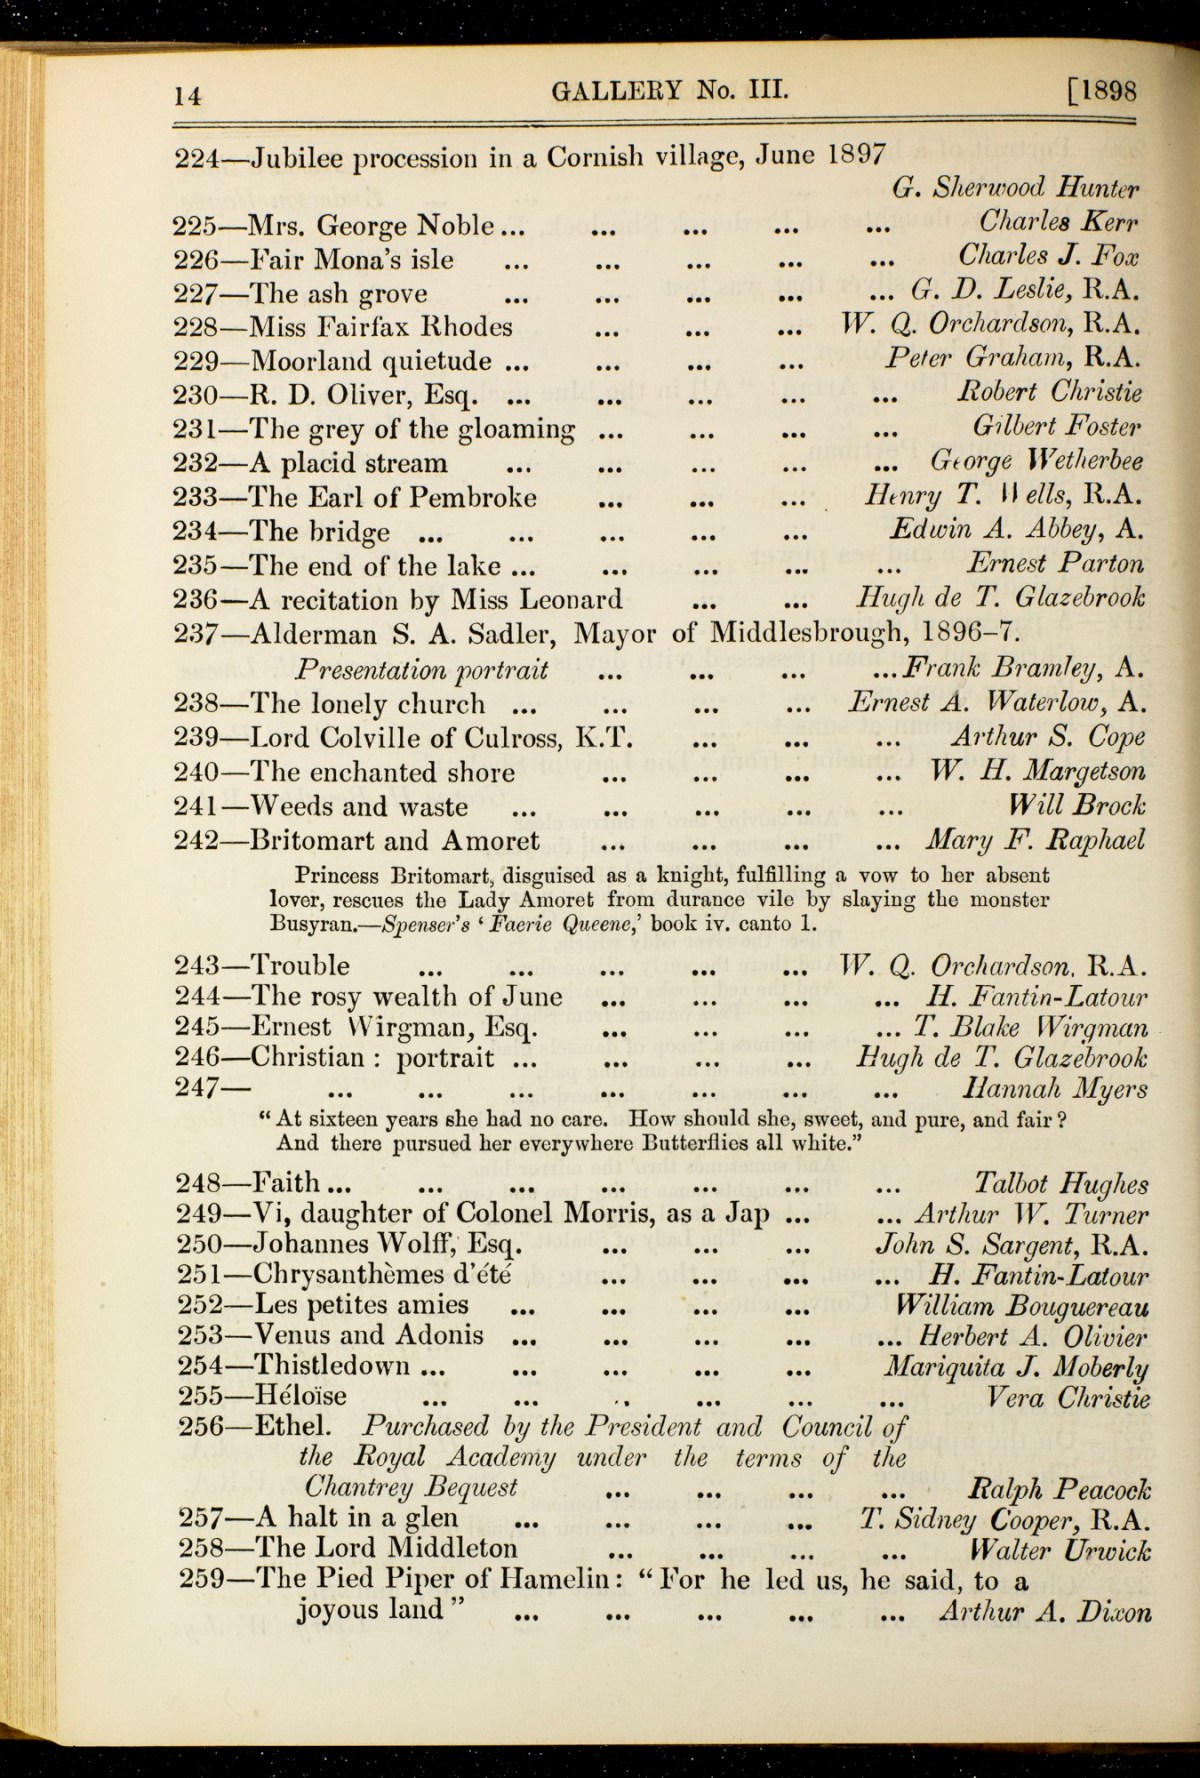 14 GALLERY No. III. [1898
224—Jubilee procession in a Cornish village, June 1897
G. Sherwood Hunter
225—Mrs. George Noble ... ... ... ... ... Charles Kerr
226—Fair Mona's isle ... ... ... ... ... Charles J. Fox
227—The ash grove ... ... ... ... ... G. D. Leslie, R.A.
228—Miss Fairfax Rhodes ... ... ... W. Q. Orchardson, R.A.
229—Moorland quietude ... ... ... ... Peter Graham, R.A.
230—R. D. Oliver, Esq. ... ... ... ... ... Robert Christie
231—The grey of the gloaming ... ... ... ... Gilbert Foster
232—A placid stream ... ... ... ... ... George Wetherbee
233—The Earl of Pembroke ... ... ... Henry T. Wells, R.A.
234—The bridge ... ... ... ... ... Edwin A. Abbey, A.
235—The end of the lake ... ... ... ... ... Ernest Parton
236—A recitation by Miss Leonard ... ... Hugh de T. Glazebrook
237—Alderman S. A. Sadler, Mayor of Middlesbrough, 1896–7.
Presentation portrait ... ... ... ... Frank Bramley, A.
238—The lonely church ... ... ... ... Ernest A. Waterlow, A.
239—Lord Colville of Culross, K.T. ... ... ... Arthur S. Cope
240—The enchanted shore ... ... ... ... W. H. Margetson
241—Weeds and waste ... ... ... ... ... Will Brock
242—Britomart and Amoret ... ... ... ... Mary F. Raphael
Princess Britomart, disguised as a knight, fulfilling a vow to her absent
lover, rescues the Lady Amoret from durance vile by slaying the monster
Busyran.—Spenser's ‘Faerie Queene,’ book iv. canto 1.
243—Trouble ... ... ... ... ... W. Q. Orchardson, R.A.
244—The rosy wealth of June ... ... ... ... H. Fantin-Latour
245—Ernest Wirgman, Esq. ... ... ... ... T. Blake Wirgman
246—Christian : portrait ... ... ... ... Hugh de T. Glazebrook
247— ... ... ... ... ... ... ... Hannah Myers
“At sixteen years she had no care. How should she, sweet, and pure, and fair?
And there pursued her everywhere Butterflies all white.”
248—Faith ... ... ... ... ... ... ... Talbot Hughes
249—Vi, daughter of Colonel Morris, as a Jap ... ... Arthur W. Turner
250—Johannes Wolff, Esq. ... ... ... John S. Sargent, R.A.
251—Chrysanthèmes d'été ... ... ... ... H. Fantin-Latour
252—Les petites amies ... ... ... ... William Bouguereau
253—Venus and Adonis ... ... ... ... ... Herbert A. Olivier
254—Thistledown ... ... ... ... ... Mariquita J. Moberly
255—Héloïse ... ... ... ... ... ... Vera Christie
256—Ethel. Purchased by the President and Council of
the Royal Academy under the terms of the
Chantrey Bequest ... ... ... ... Ralph Peacock
257—A halt in a glen ... ... ... ... T. Sidney Cooper, R.A.
258—The Lord Middleton ... ... ... ... Walter Urwick
259—The Pied Piper of Hamelin : “For he led us, he said, to a
joyous land” ... ... ... ... ... Arthur A. Dixon